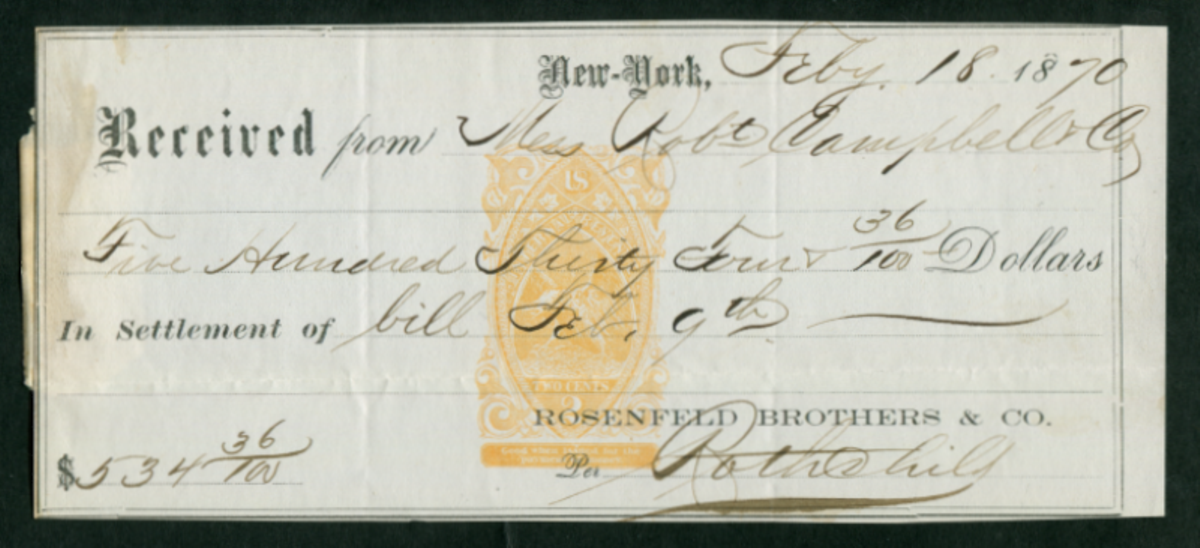 New-York, Feby. 18. 1870
Received from Mess Robt Campbell & Co
Five Hundred Thirty Four & 36/100 Dollars
In Settlement of bill Feb. 9th
U S
TWO CENTS
2
ROSENFELD BROTHERS & CO.
$534 36/100
Per Rothschild